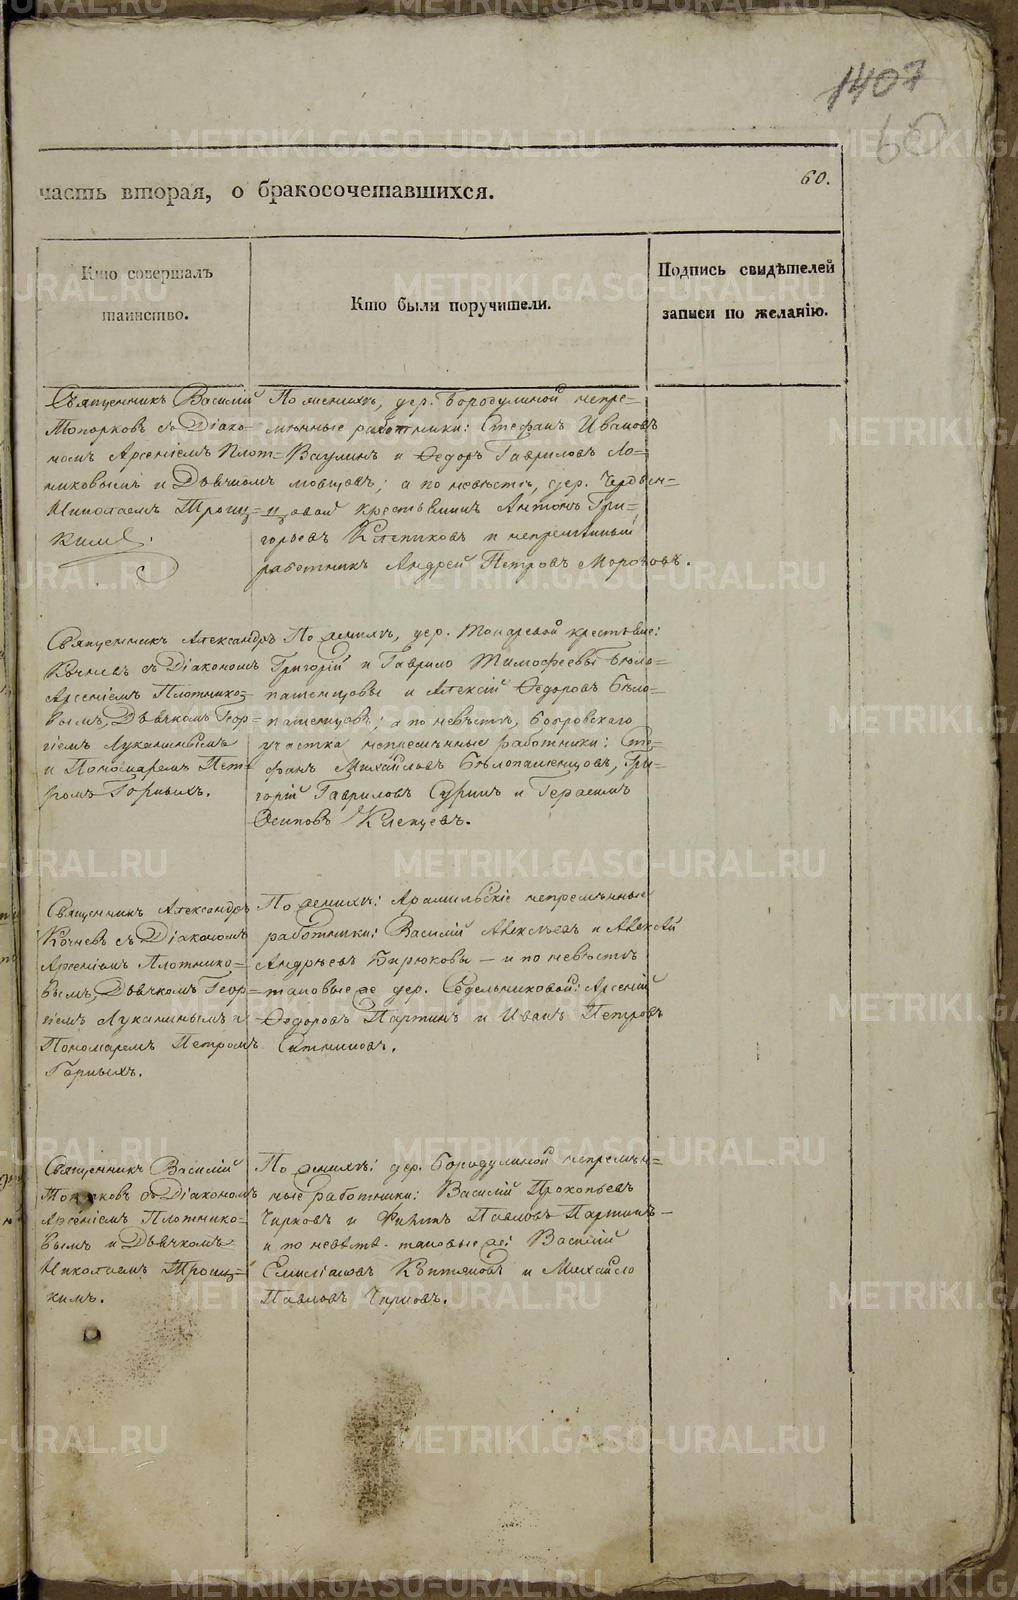 1407
60
60.
часть вторая, о бракосочетавшихся.
Кто совершалъ
таинство.
Кто были поручители.
Подпись свидѣтелей
записи по желанію.
Священникъ Василій
Топорковъ съ Діако-
номъ Арсеніемъ Плот-
никовымъ и Дьячкомъ
Николаемъ Троиц-
кимъ.
По женихѣ, дер. Бородулиной непре-
мѣнные работники: Стефанъ Ивановъ
Ваулинъ и Ѳедоръ Гавриловъ Ло-
мовцевъ; а по невѣстѣ, дер.
крестьянинъ Антонъ Гри-
горьевъ и непремѣнный
работникъ Андрей Петровъ
Священникъ Александръ
Кочневъ съ Діакономъ
Арсеніемъ Плотнико-
вымъ, Дьячкомъ Геор-
гіемъ Луканинымъ
и Пономаремъ Пет-
ромъ Горныхъ.
По женихѣ, дер. Токаревой крестьяне:
Григорій и Гаврило Тимофеевы Бѣло-
пашенцовы и Алексій Ѳедоровъ Бѣло-
пашенцовъ; а по невѣстѣ, Бобровскаго
участка непремѣнные работники: Сте-
фанъ Михайловъ Бѣлопашенцовъ, Гри-
горій Гавриловъ Суринъ и Герасимъ
Осиповъ Клепцевъ.
Священникъ Александръ
Кочневъ съ Діакономъ
Арсеніемъ Плотнико-
вымъ, Дьячкомъ Геор-
гіемъ Луканинымъ и
Пономаремъ Петромъ
Горныхъ.
По женихѣ: Арамильскіе непремѣнные
работники: Василій Алексѣевъ и Алексѣй
Андрѣевъ Бирюковы — и по невѣстѣ
таковые же дер. Седельниковой: Арсеній
Ѳедоровъ Партинъ и Иванъ Петровъ
Ситниковъ.
Священникъ Василій
Топорковъ съ Діакономъ
Арсеніемъ Плотнико-
вымъ и Дьячкомъ
Николаемъ Троиц-
кимъ.
По женихѣ: дер. Бородулиной непремѣн-
ные работники: Василій Прокопьевъ
Чирковъ и Павловъ Партинъ —
и по невѣстѣ - таковые же: Василій
Емиліановъ Коптяковъ и Михайло
Павловъ Чирковъ.
METRIKI.GASO-URAL.RU